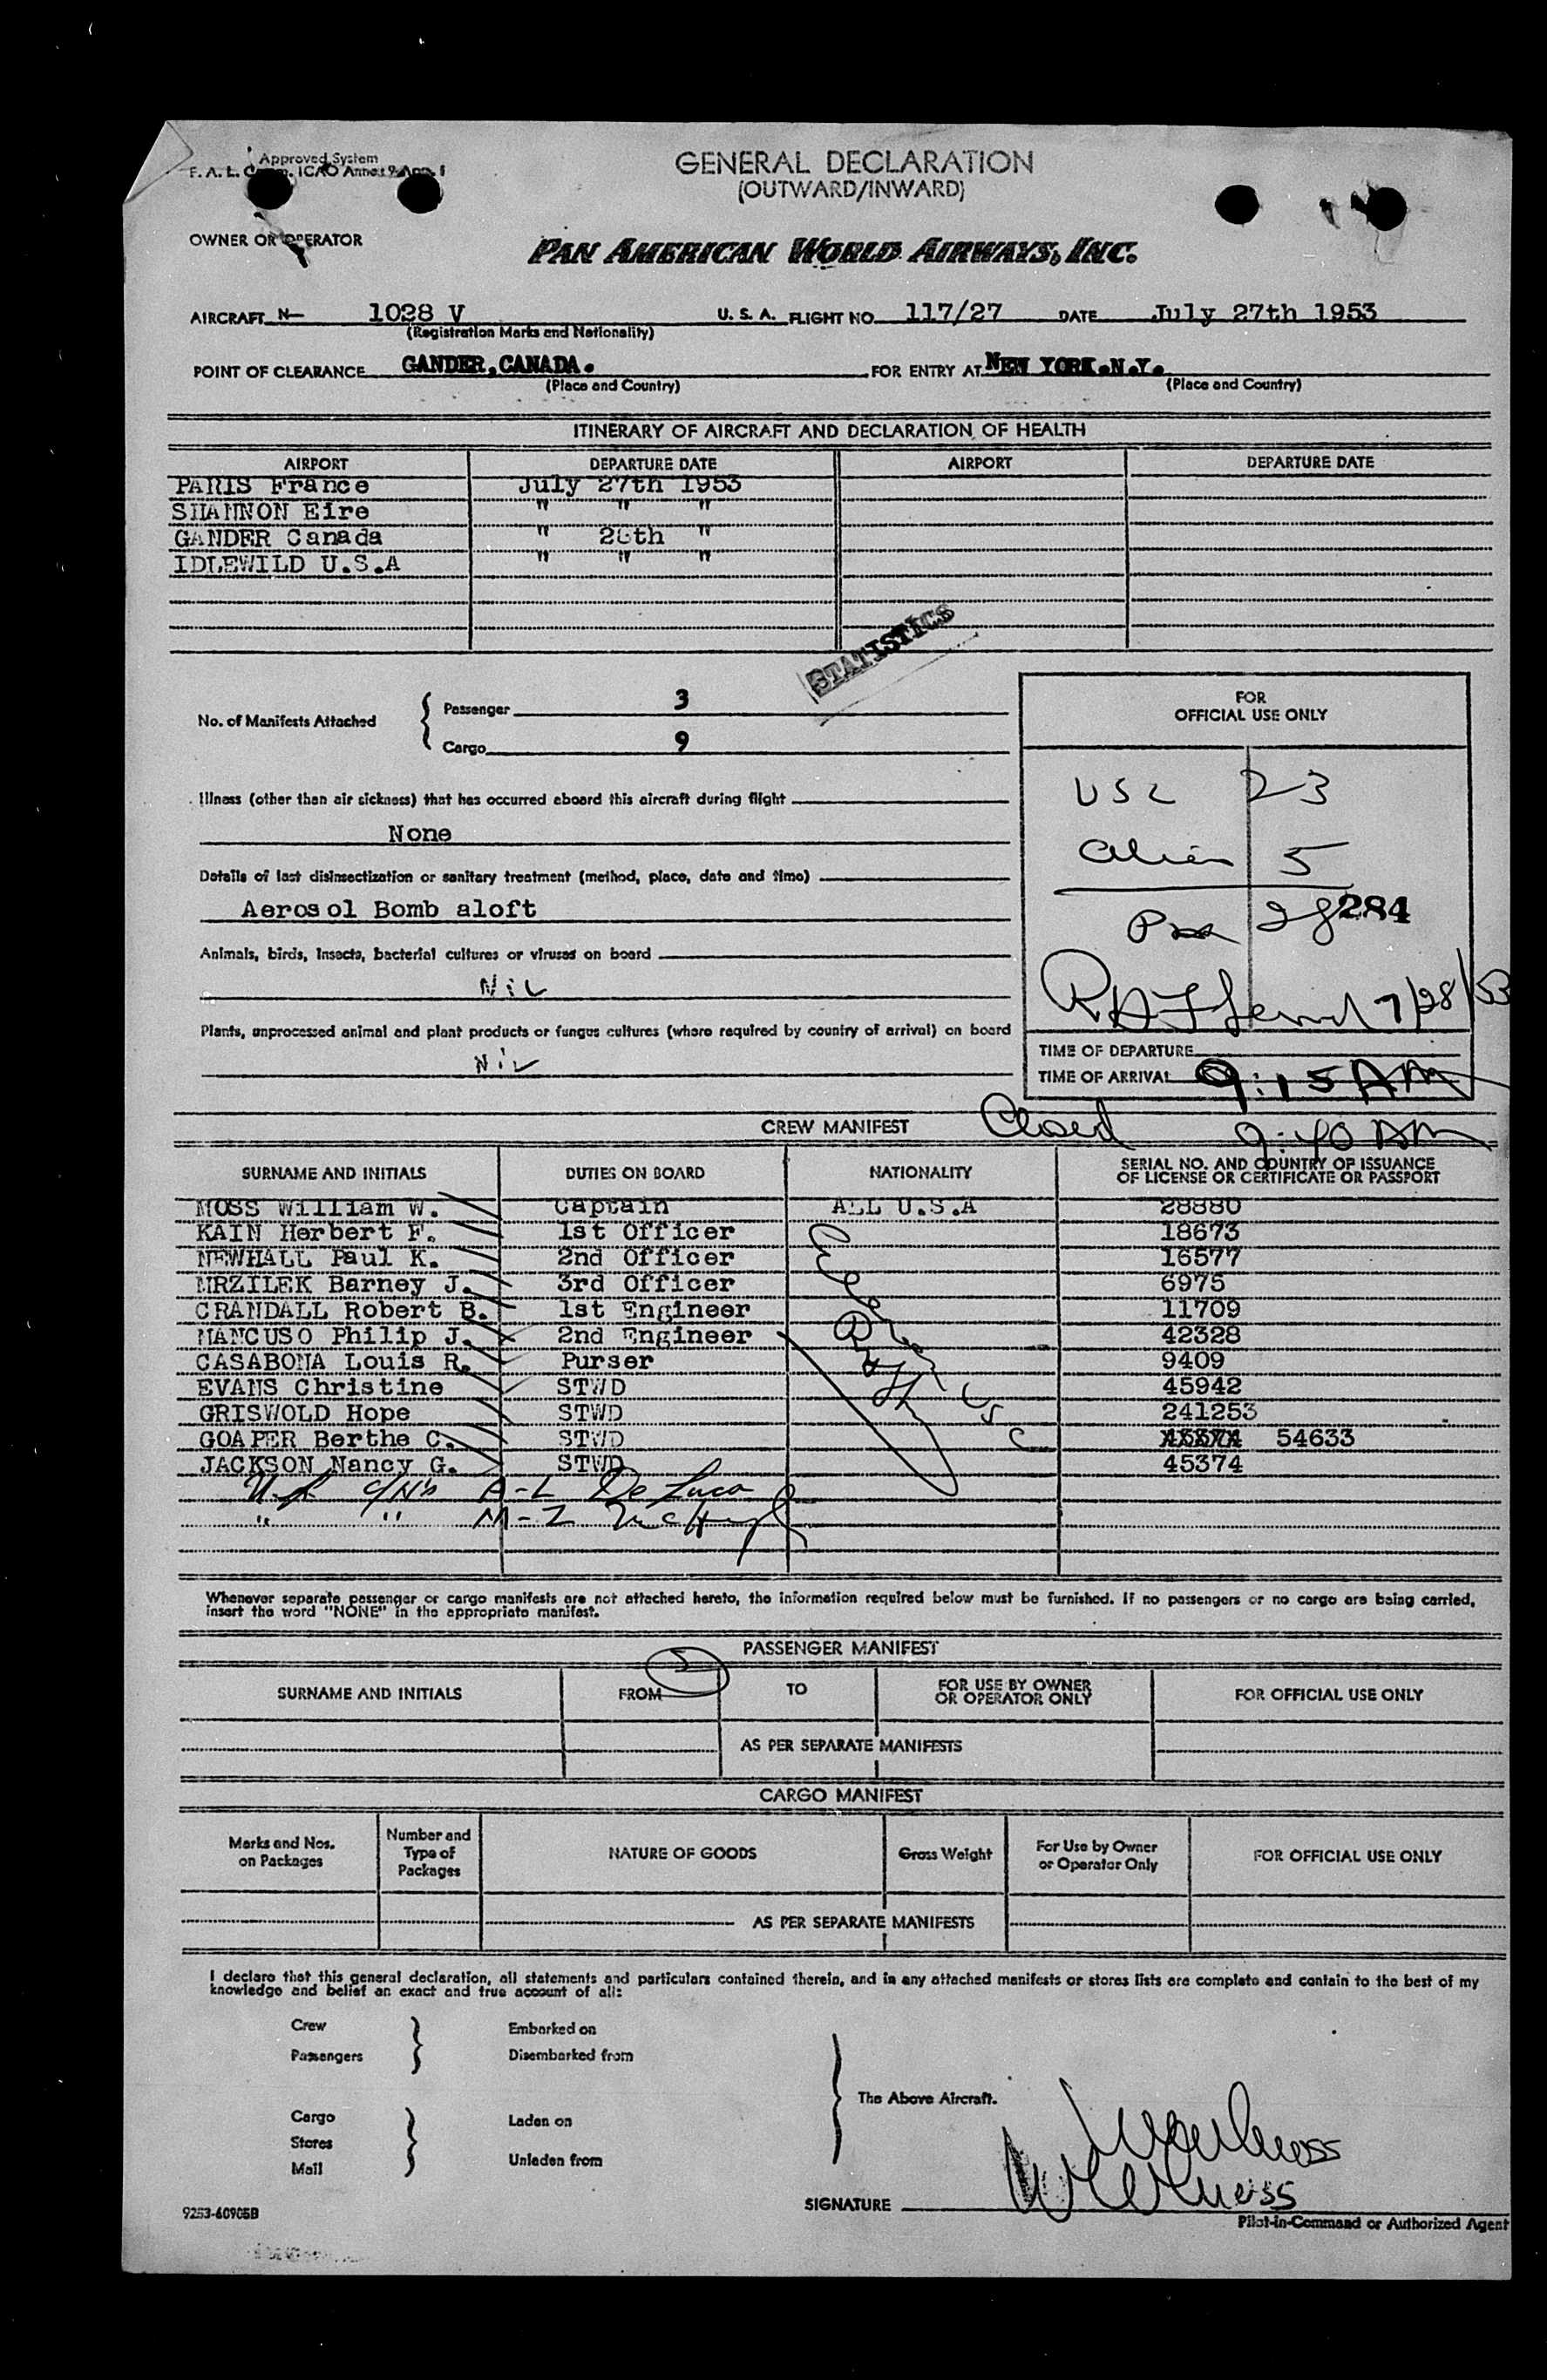 Approved System
F. A. L. Comm. ICAO Annex 9 App. 1
GENERAL DECLARATION
(OUTWARD/INWARD)
OWNER OR OPERATOR
PAN AMERICAN WORLD AIRWAYS, INC.
AIRCRAFT N- 1028 V U. S. A. FLIGHT NO. 117/27 DATE July 27th 1953
(Registration Marks and Nationality)
POINT OF CLEARANCE GANDER, CANADA. FOR ENTRY AT NEW YORK.N.Y.
(Place and Country) (Place and Country)
ITINERARY OF AIRCRAFT AND DECLARATION OF HEALTH
AIRPORT DEPARTURE DATE AIRPORT DEPARTURE DATE
PARIS France July 27th 1953
SHANNON Eire " " "
GANDER Canada " 28th "
IDLEWILD U.S.A " " "
STATISTICS
No. of Manifests Attached
Passenger 3
Cargo 9
FOR
OFFICIAL USE ONLY
USC 23
Alien 5
Pax 28
284
7/28/53
Illness (other than air sickness) that has occurred aboard this aircraft during flight
None
Details of last disinsectization or sanitary treatment (method, place, date and time)
Aerosol Bomb aloft
Animals, birds, insects, bacterial cultures or viruses on board
Nil
Plants, unprocessed animal and plant products or fungus cultures (where required by country of arrival) on board
Nil
TIME OF DEPARTURE
TIME OF ARRIVAL 9:15 AM
Closed 9:40 AM
CREW MANIFEST
SURNAME AND INITIALS DUTIES ON BOARD NATIONALITY SERIAL NO. AND COUNTRY OF ISSUANCE
OF LICENSE OR CERTIFICATE OR PASSPORT
MOSS William W. Captain ALL U.S.A 28880
KAIN Herbert F. 1st Officer 18673
NEWHALL Paul K. 2nd Officer 16577
MRZILEK Barney J. 3rd Officer 6975
CRANDALL Robert B. 1st Engineer 11709
MANCUSO Philip J. 2nd Engineer 42328
CASABONA Louis R. Purser 9409
EVANS Christine STWD 45942
GRISWOLD Hope STWD 241253
GOAPER Berthe C. STWD 54633
JACKSON Nancy G. STWD 45374
A-L De Luca
" " M-Z McHugh
Whenever separate passenger or cargo manifests are not attached hereto, the information required below must be furnished. If no passengers or no cargo are being carried,
insert the word "NONE" in the appropriate manifest.
PASSENGER MANIFEST
SURNAME AND INITIALS FROM TO FOR USE BY OWNER
OR OPERATOR ONLY FOR OFFICIAL USE ONLY
AS PER SEPARATE MANIFESTS
CARGO MANIFEST
Marks and Nos.
on Packages Number and
Type of
Packages NATURE OF GOODS Gross Weight For Use by Owner
or Operator Only FOR OFFICIAL USE ONLY
AS PER SEPARATE MANIFESTS
I declare that this general declaration, all statements and particulars contained therein, and in any attached manifests or stores lists are complete and contain to the best of my
knowledge and belief an exact and true account of all:
Crew Embarked on
Passengers Disembarked from
The Above Aircraft.
Cargo Laden on
Stores
Mail Unladen from
SIGNATURE
Pilot-in-Command or Authorized Agent
9253-60905B